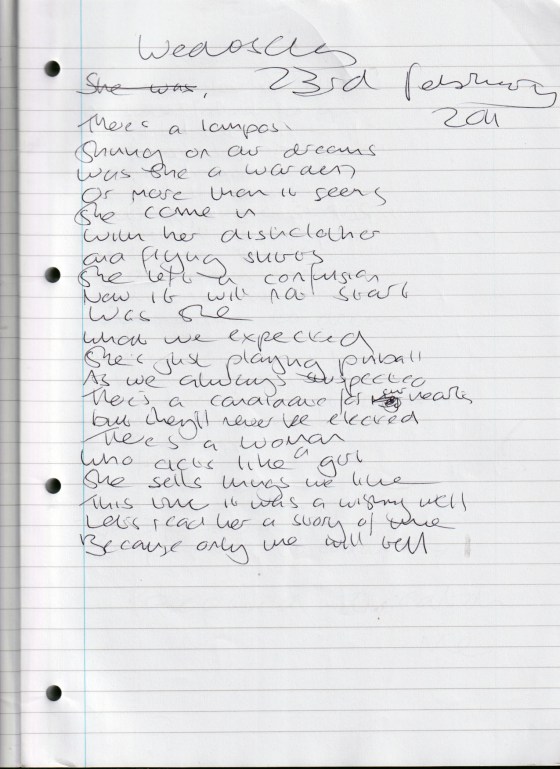 Wednesday
She was, 23rd February
2011
There's a lampost
Shining on our dreams
Was she a warden
Or more than it seems
She came in
With her dishcloth
and flying saucers
She left a confusion
Now it will not start
Was she
what we expected
She's just playing pinball
As we always suspected
There's a candidate for our hearts
but they'll never be elected
There's a woman
who acts like a girl
She sells things we like
This time it was a wishing well
Let's read her a story of time
Because only we will tell